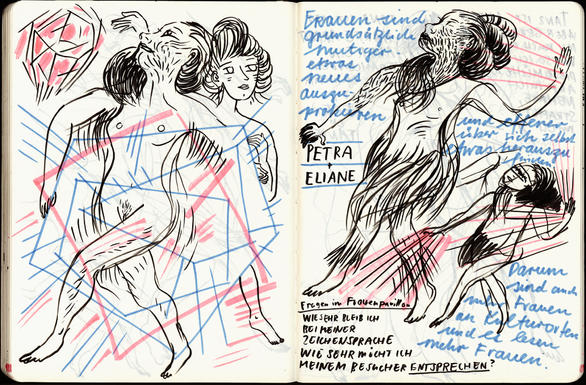 Frauen sind
grundsätzlich
mutiger
etwas
neues
auszu-
probieren
und ebenen
über sich selbst
etwas herauszu
finden
PETRA
+
ELIANE
Darum
sind auch
mehr Frauen
an Kulturorten
und es lesen
mehr Frauen.
Fragen im Frauenpavillon
WIE SEHR BLEIB ICH
BEI MEINER
ZEICHENSPRACHE
WIE SEHR MÖCHT ICH
MEINEM BESUCHER ENTSPRECHEN?